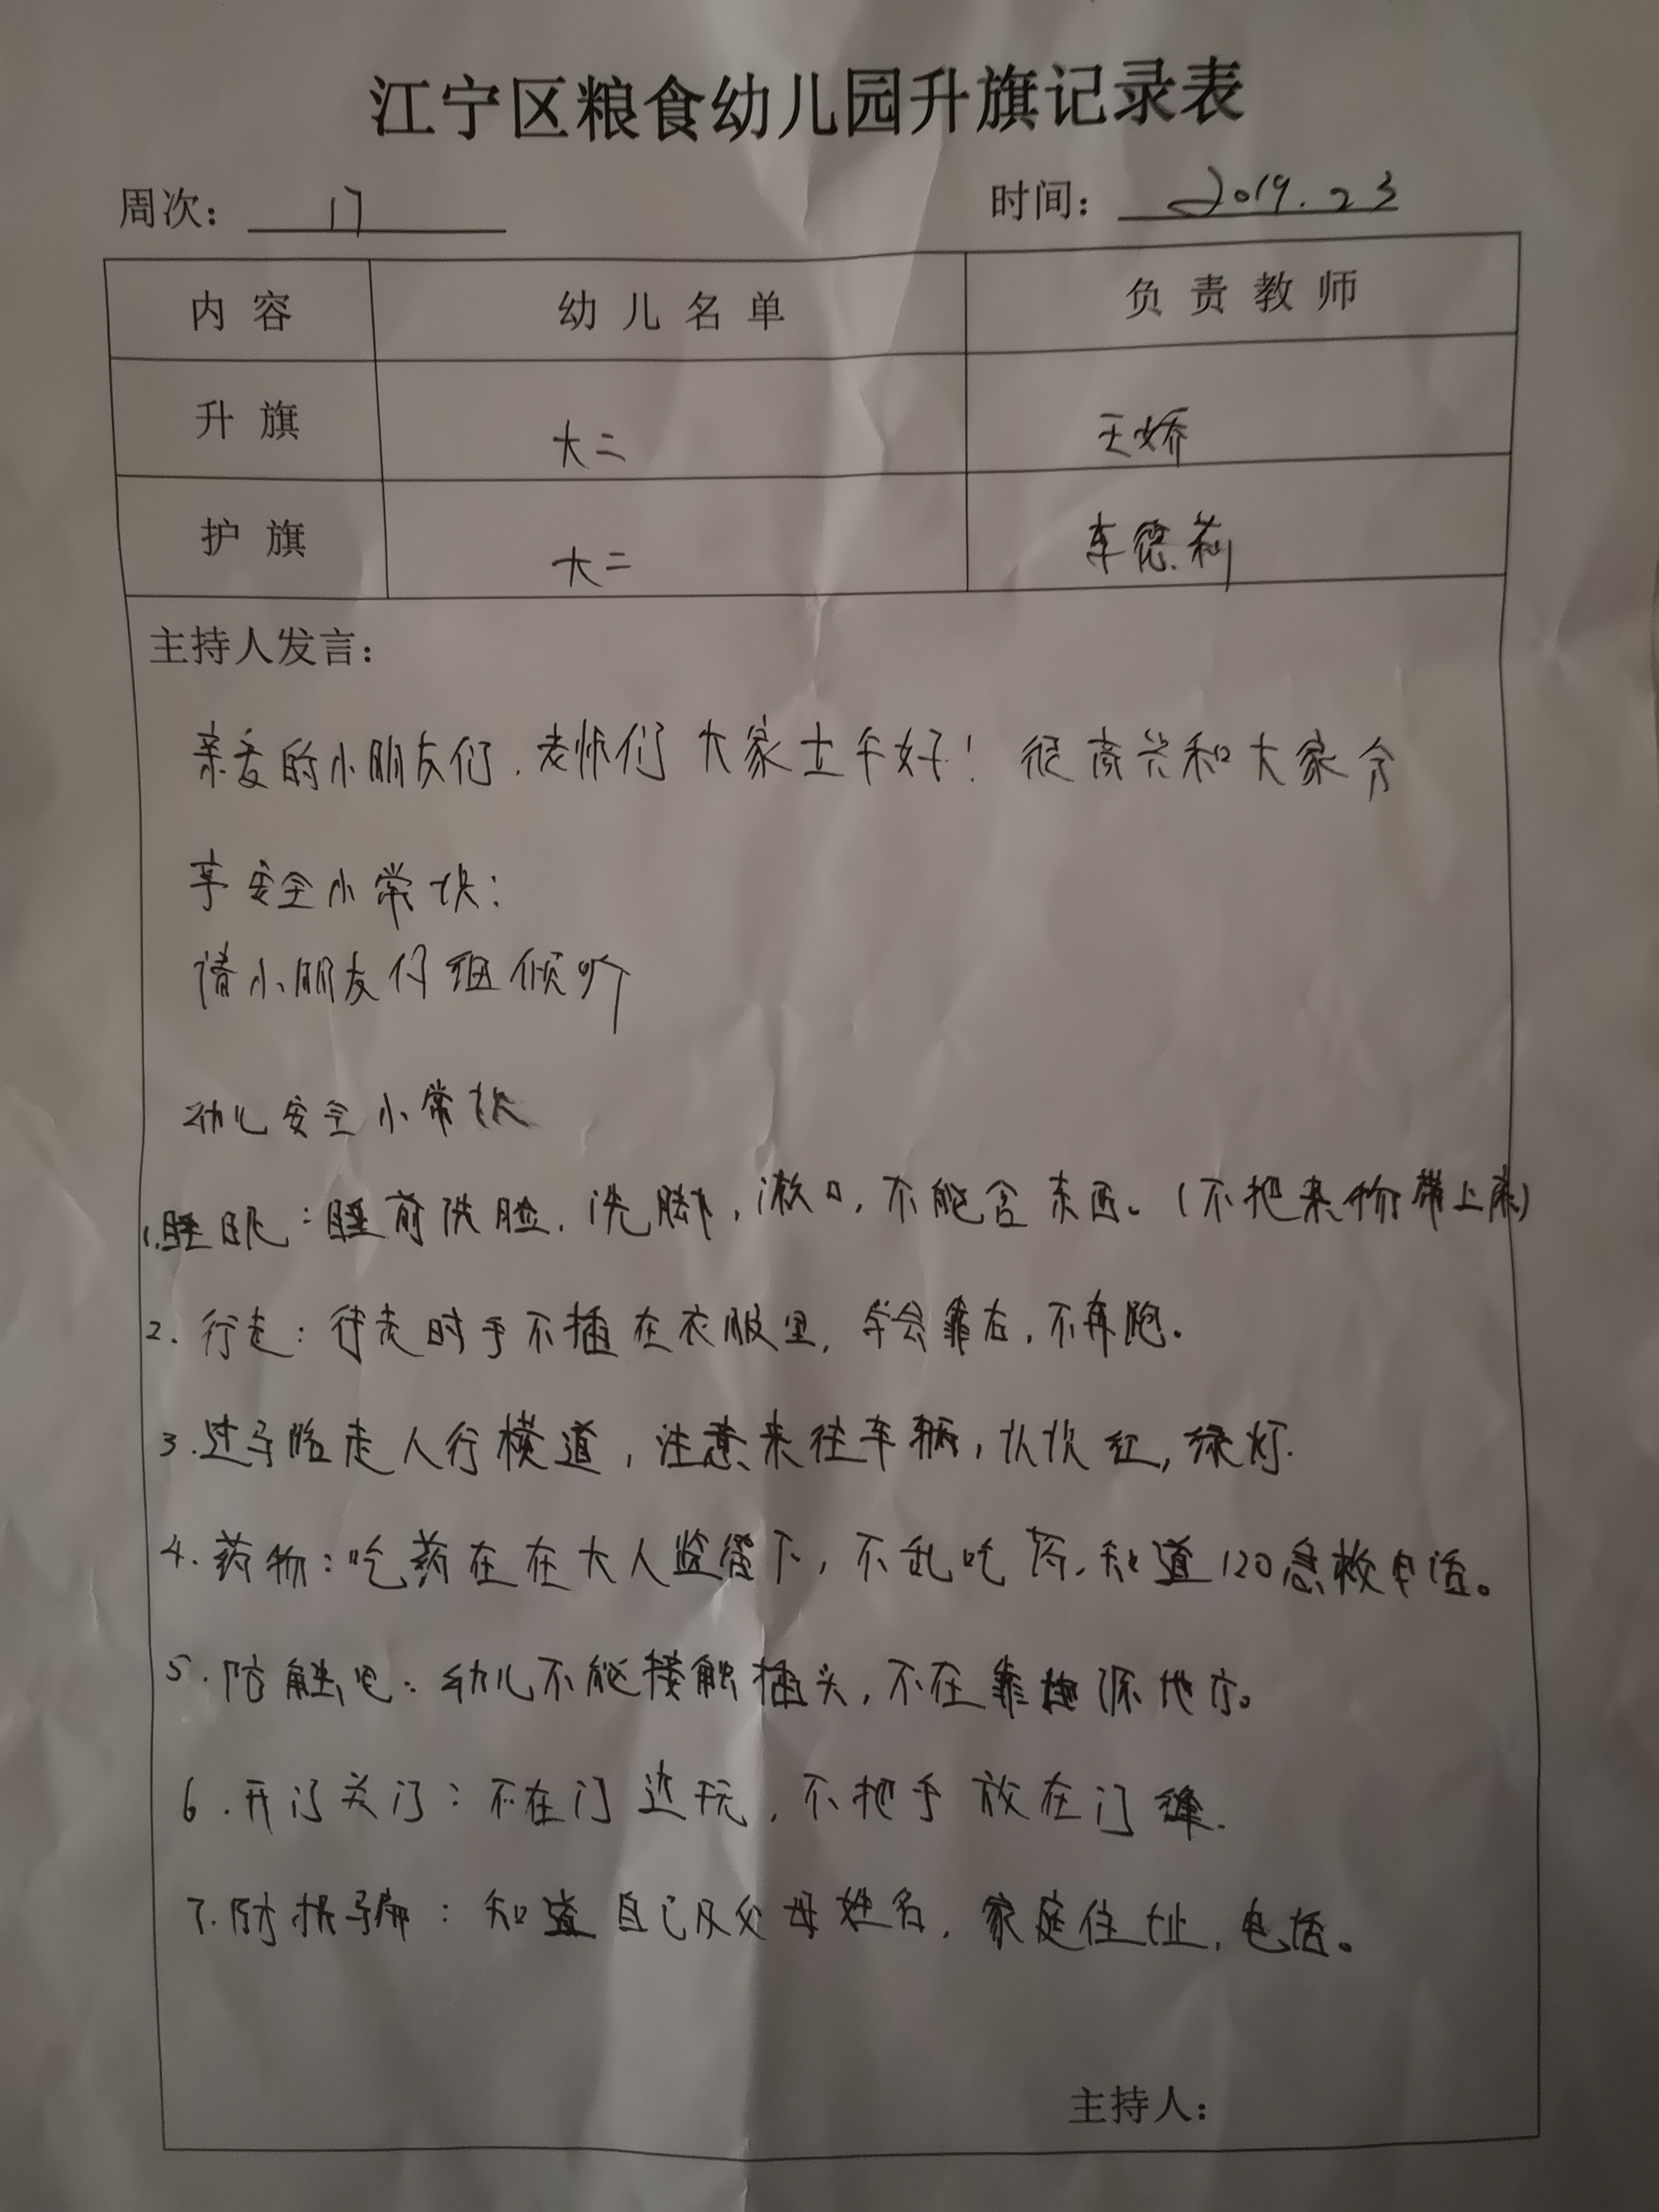 江宁区粮食幼儿园升旗记录表
周次： 17 时间： 2019.23
内容 幼儿名单 负责教师
升旗 大二 王娇
护旗 大二 车德莉
主持人发言：
亲爱的小朋友们，老师们 大家上午好！很高兴和大家分
享安全小常识：
请小朋友仔细倾听
幼儿安全小常识
1.睡眠：睡前洗脸，洗脚，漱口，不能含东西。（不把杂物带上床）
2. 行走：行走时手不插在衣服里，学会靠右，不奔跑。
3.过马路走人行横道，注意来往车辆，认识红，绿灯.
4. 药物：吃药在在大人监督下，不乱吃药，知道120急救电话。
5. 防触电：幼儿不能接触插头，不在靠电源地方。
6. 开门关门：不在门边玩，不把手放在门缝.
7. 防拐骗：知道自己及父母姓名，家庭住址，电话。
主持人：